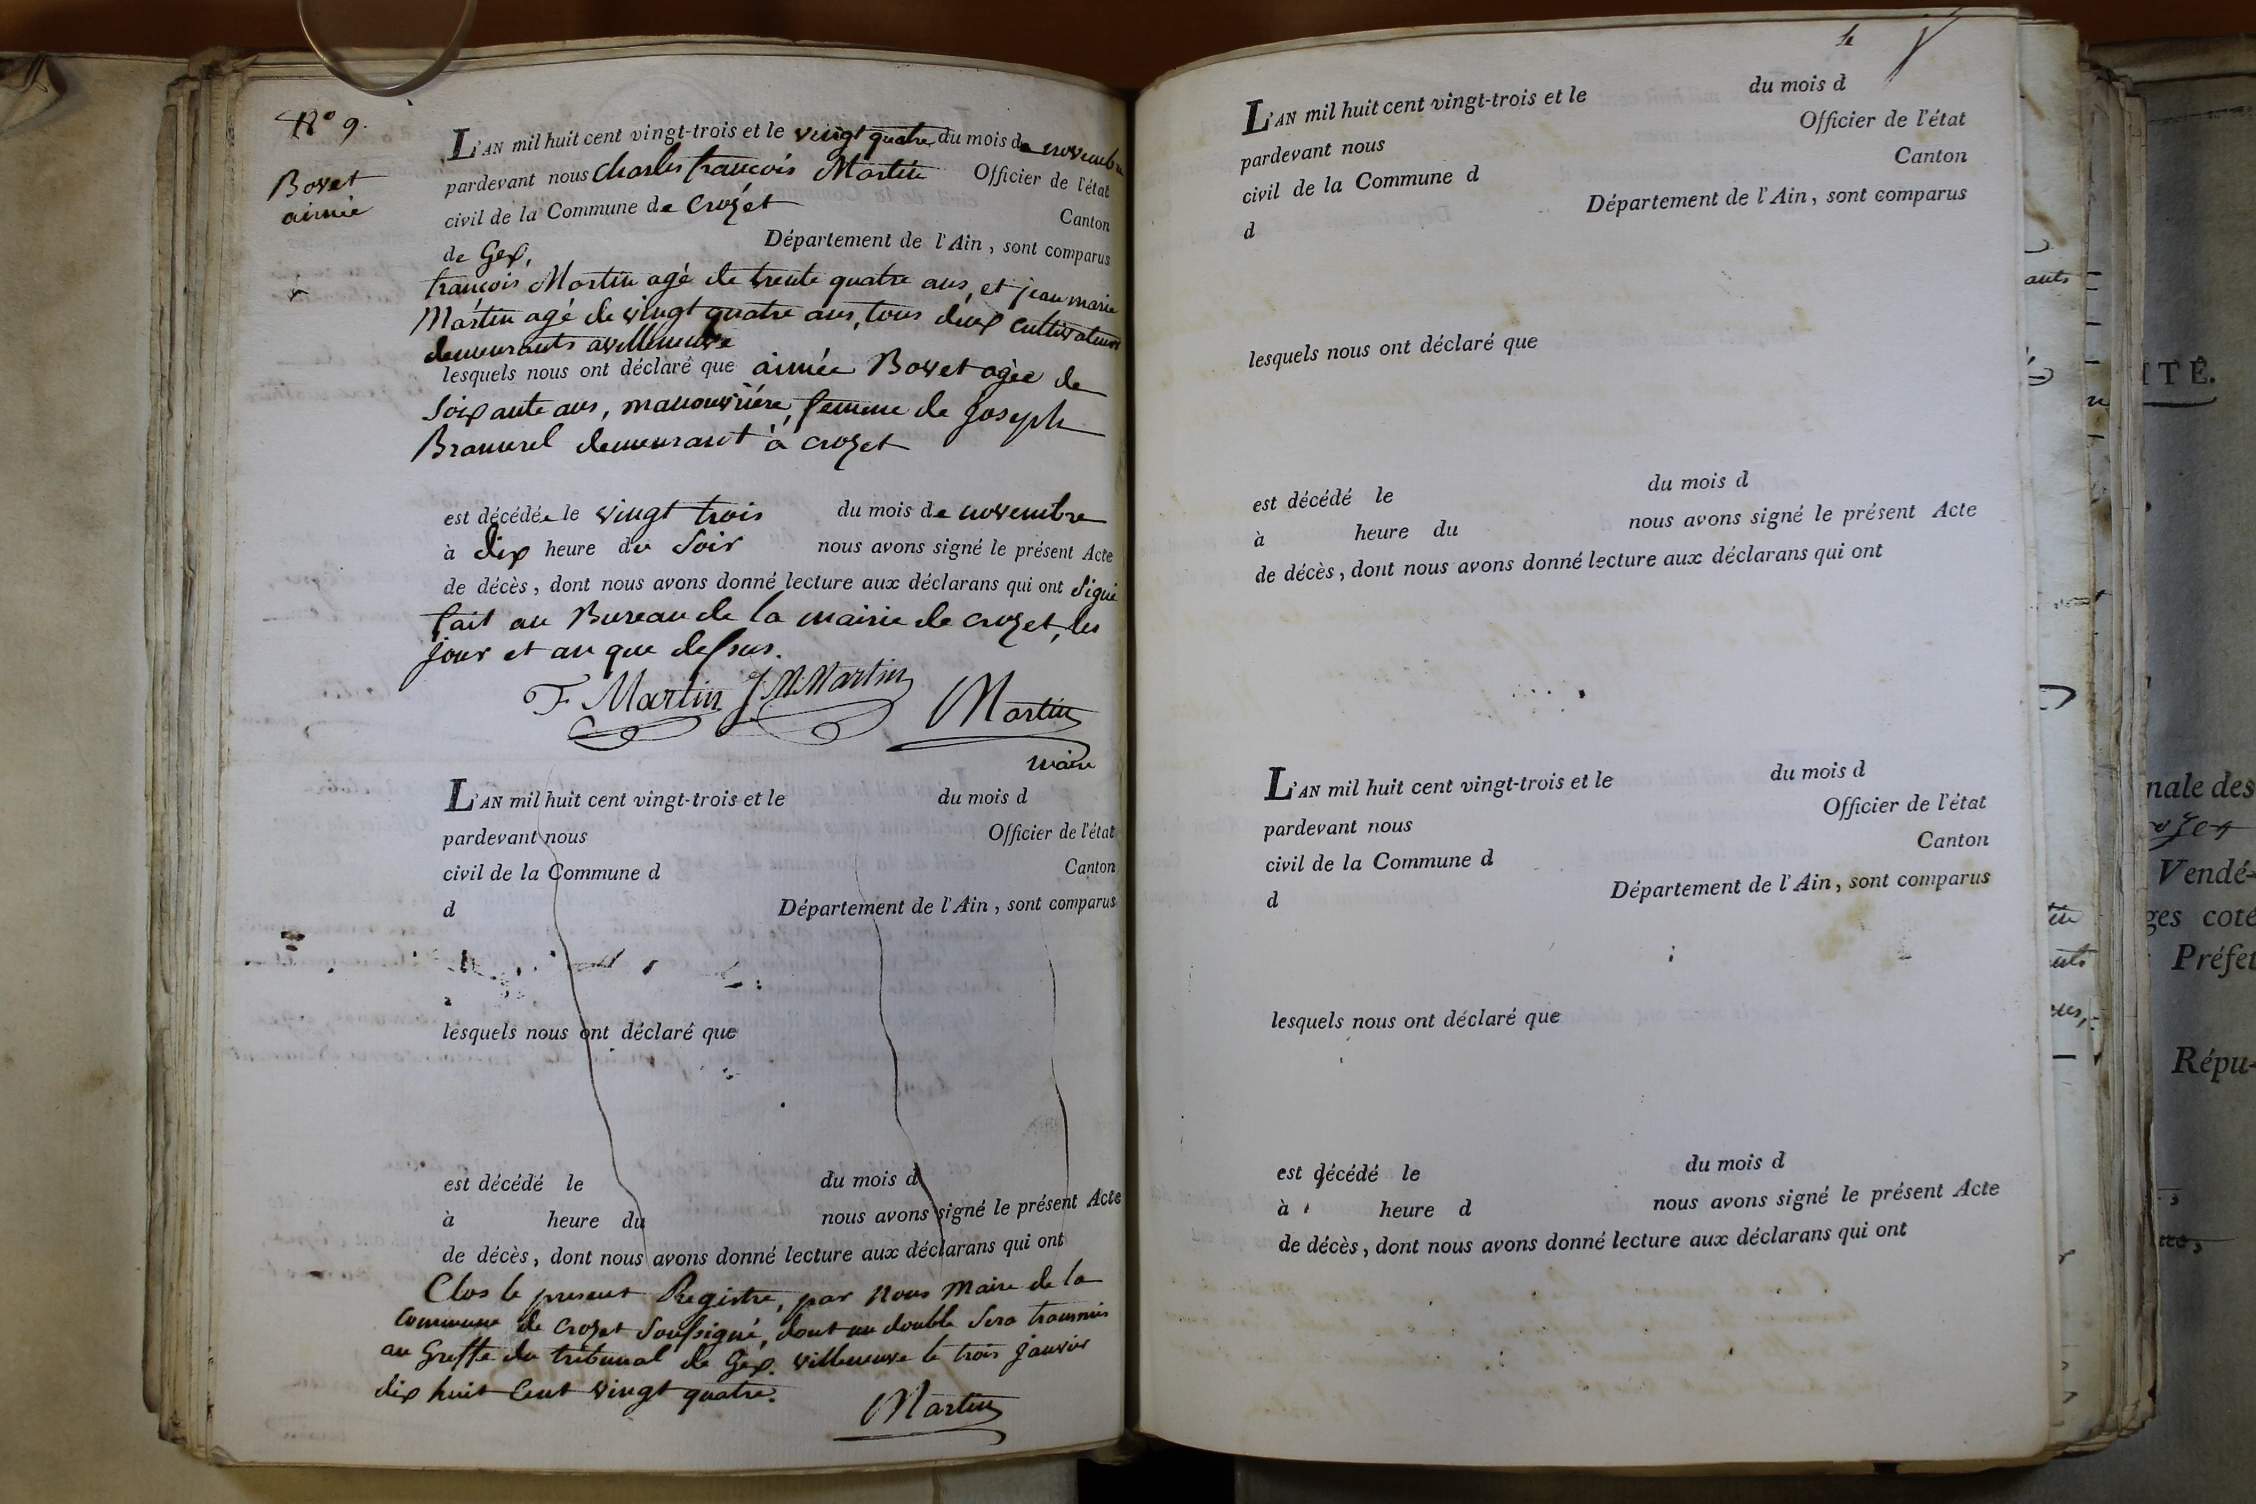 N° 9.
Bovet
aimée
L'AN mil huit cent vingt-trois et le vingt quatre du mois de novembre
pardevant nous Charles françois Martin Officier de l'état
civil de la Commune de Crozet Canton
de Gex, Département de l'Ain, sont comparus
françois Martin agé de trente quatre ans, et jean marie
Martin agé de vingt quatre ans, tous deux cultivateurs
demeurants a villeneuve
lesquels nous ont déclaré que aimée Bovet agée de
Soixante ans, manouvrière, femme de Joseph
demeurant à crozet
est décédée le vingt trois du mois de novembre
à dix heure du Soir nous avons signé le présent Acte
de décès, dont nous avons donné lecture aux déclarans qui ont Signé
fait au Bureau de la mairie de crozet, les
jour et an que dessus.
F. Martin J. M. Martin
Martin
maire
L'AN mil huit cent vingt-trois et le du mois d
pardevant nous Officier de l'état
civil de la Commune d Canton
d Département de l'Ain, sont comparus
lesquels nous ont déclaré que
est décédé le du mois d
à heure du nous avons signé le présent Acte
de décès, dont nous avons donné lecture aux déclarans qui ont
Clos le present Registre, par Nous Maire de la
commune de Crozet Soussigné, dont un double Sera transmis
au Greffe du tribunal de Gex. villeneuve le trois janvier
dix huit Cent vingt quatre.
Martin
L'AN mil huit cent vingt-trois et le du mois d
pardevant nous Officier de l'état
civil de la Commune d Canton
d Département de l'Ain, sont comparus
lesquels nous ont déclaré que
est décédé le du mois d
à heure du nous avons signé le présent Acte
de décès, dont nous avons donné lecture aux déclarans qui ont
L'AN mil huit cent vingt-trois et le du mois d
pardevant nous Officier de l'état
civil de la Commune d Canton
d Département de l'Ain, sont comparus
lesquels nous ont déclaré que
est décédé le du mois d
à heure d nous avons signé le présent Acte
de décès, dont nous avons donné lecture aux déclarans qui ont
ITÉ.
nale des
Vendé-
ges coté
Préfet
Répu-